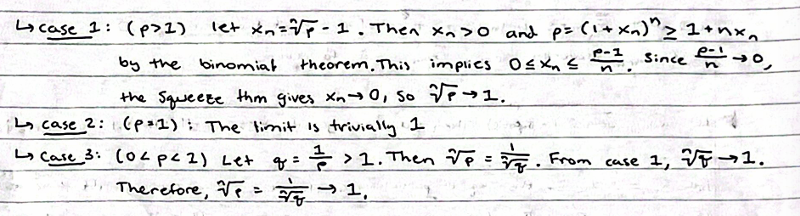 ↳ case 1: (p>1) let xₙ = ⁿ√p - 1. Then xₙ > 0 and p = (1+xₙ)ⁿ ≥ 1+nxₙ
by the binomial theorem. This implies 0 ≤ xₙ ≤ (p-1)/n. Since (p-1)/n → 0,
the Squeeze thm gives xₙ → 0, so ⁿ√p → 1.
↳ case 2: (p=1): The limit is trivially 1
↳ Case 3: (0<p<1) Let q = 1/p > 1. Then ⁿ√p = 1/ⁿ√q. From case 1, ⁿ√q → 1.
Therefore, ⁿ√p = 1/ⁿ√q → 1.